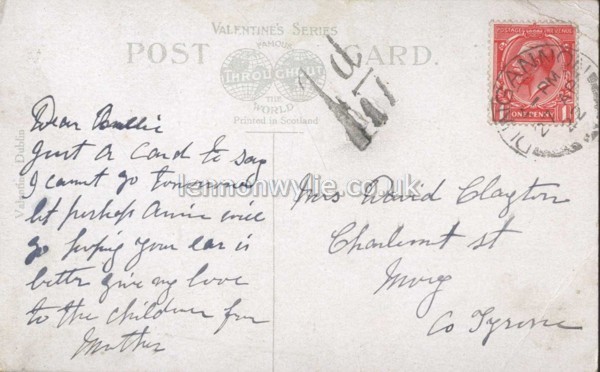 VALENTINE'S SERIES
POST CARD.
FAMOUS
THROUGHOUT
THE
WORLD
Printed in Scotland
Valentine Dublin
POSTAGE
ONE PENNY
DUNGANNON
PM
22
lennonwylie.co.uk
Dear
Just a card to say
I cannot go tomorrow
but perhaps Annie will
go hoping your ear is
better give my love
to the children from
Mother
Mrs David Clayton
Charlemont st
Moy
Co Tyrone